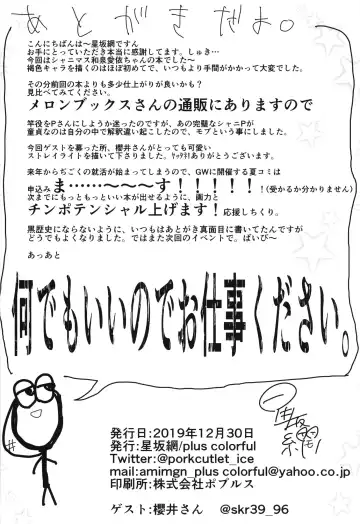 あとがきだよ。
こんにちばんは～星坂網ですん
お手にとっていただき本当に感謝してます。しゅき…
今回はシャニマス和泉愛依ちゃんの本でした～
褐色キャラを描くのはほぼ初めてで、いつもより手間がかかって大変でした。
その分前回の本よりも多少仕上がりが良いかも？
見比べてみてください。
メロンブックスさんの通販にありますので
竿役をPさんにしようか迷ったのですが、あの完璧なシャニPが
童貞なのは自分の中で解釈違い起こしたので、モブという事にしました。
今回ゲストを募った所、櫻井さんがとっても可愛い
ストレイライトを描いて下さりました。ﾔｯﾀｧ!ありがとうございます。
来年からぢごくの就活が始まってしまうので、GWに開催する夏コミは
申込みま……～～～す！！！！！！(受かるか分かりません)
次までにもっともっといい本が出せるように、画力と
チンポテンシャル上げます！応援しちくり。
黒歴史にならないように、いつもはあとがき真面目に書いてたんですが
どうでもよくなりました。ではまた次回のイベントで。ばいび～
あっあと
何でもいいのでお仕事ください。
星坂網
発行日:2019年12月30日
発行:星坂網/plus colorful
Twitter:@porkcutlet_ice
mail:amimgn_plus colorful@yahoo.co.jp
印刷所:株式会社ポプルス
ゲスト:櫻井さん @skr39_96